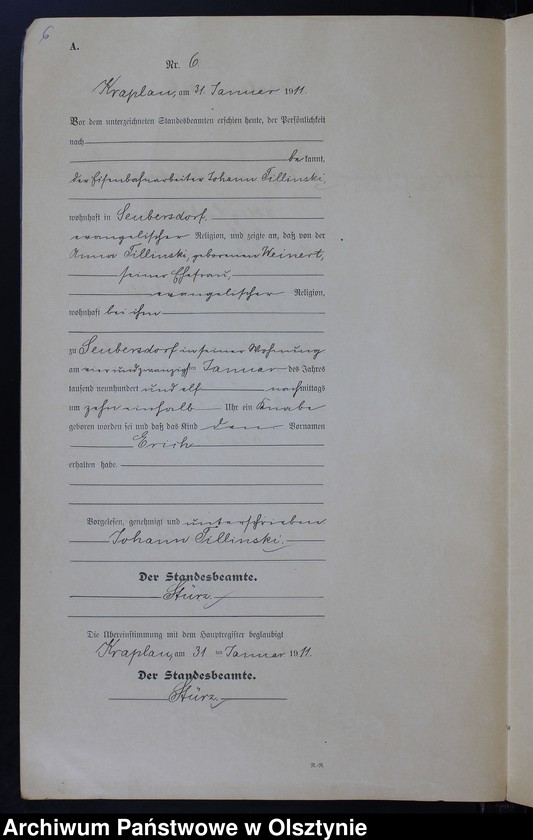 6
A.
Nr. 6
Kraplau, am 31. Januar 1911.
Vor dem unterzeichneten Standesbeamten erschien heute, der Persönlichkeit
nach
bekannt,
der Eisenbahnarbeiter Johann Tillinski,
wohnhaft in Seubersdorf,
evangelischer Religion, und zeigte an, daß von der
Anna Tillinski, geborenen Weinert,
seiner Ehefrau,
evangelischer Religion,
wohnhaft bei ihm
zu Seubersdorf in seiner Wohnung
am vierundzwanzigsten Januar des Jahres
tausend neunhundert und elf nachmittags
um zehn einhalb Uhr ein Knabe
geboren worden sei und daß das Kind den Vornamen
Erich
erhalten habe.
Vorgelesen, genehmigt und unterschrieben
Johann Tillinski.
Der Standesbeamte.
Stürz.
Die Übereinstimmung mit dem Hauptregister beglaubigt
Kraplau, am 31 ten Januar 1911.
Der Standesbeamte.
Stürz.
Archiwum Państwowe w Olsztynie